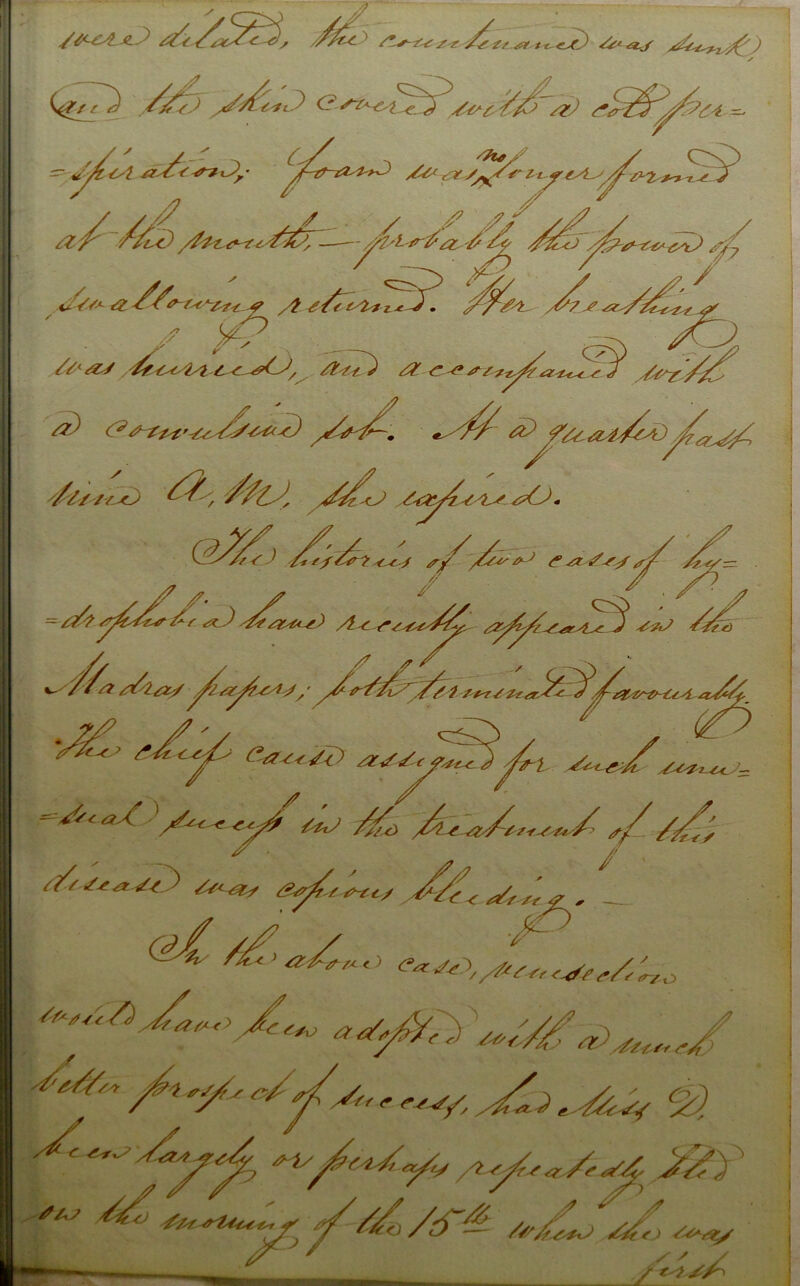 were dilated, the countenance was sunk,
and the skin covered with a cold per=
=spiration; foam was no longer formed
at the mouth, — probably the power of
swallowing returned. Her breathing
was hurried, and accompanied with
a convulsive sob. At a quarter past
nine A, M, she expired.
The histories of two cases of hy=
=drophobia have recently appeared in the
Madras papers; both terminated favourably.
The chief cause assigned for such unu=
=sual success in the treatment of this
disease was copious bleeding. —
In the above case, venesection
would have been adopted with a much
better prospect of success, had Miss D,
been largely or perhaps repeatedly bled
on the morning of the 15th when she was
first